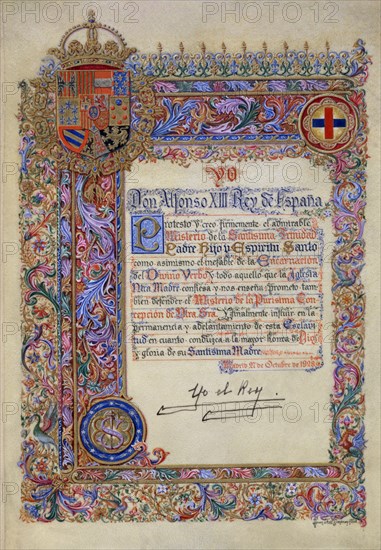 YO
Don Alfonso XIII Rey de España
Protesto y creo firmemente el admirable
Misterio de la Santísima Trinidad
Padre Hijo y Espíritu Santo
como asimismo el inefable de la Encarnación
del Divino Verbo y todo aquello que la Iglesia
Ntra Madre confiesa y nos enseña y prometo tam
bien defender el Misterio de la Purísima Con
cepción de Ntra Sra. Igualmente influir en la
permanencia y adelantamiento de esta Esclavi
tud en cuanto conduzca a la mayor Honra de Dios
y gloria de su Santísima Madre
Madrid 21 de Octubre de
Yo el Rey.
PHOTO12